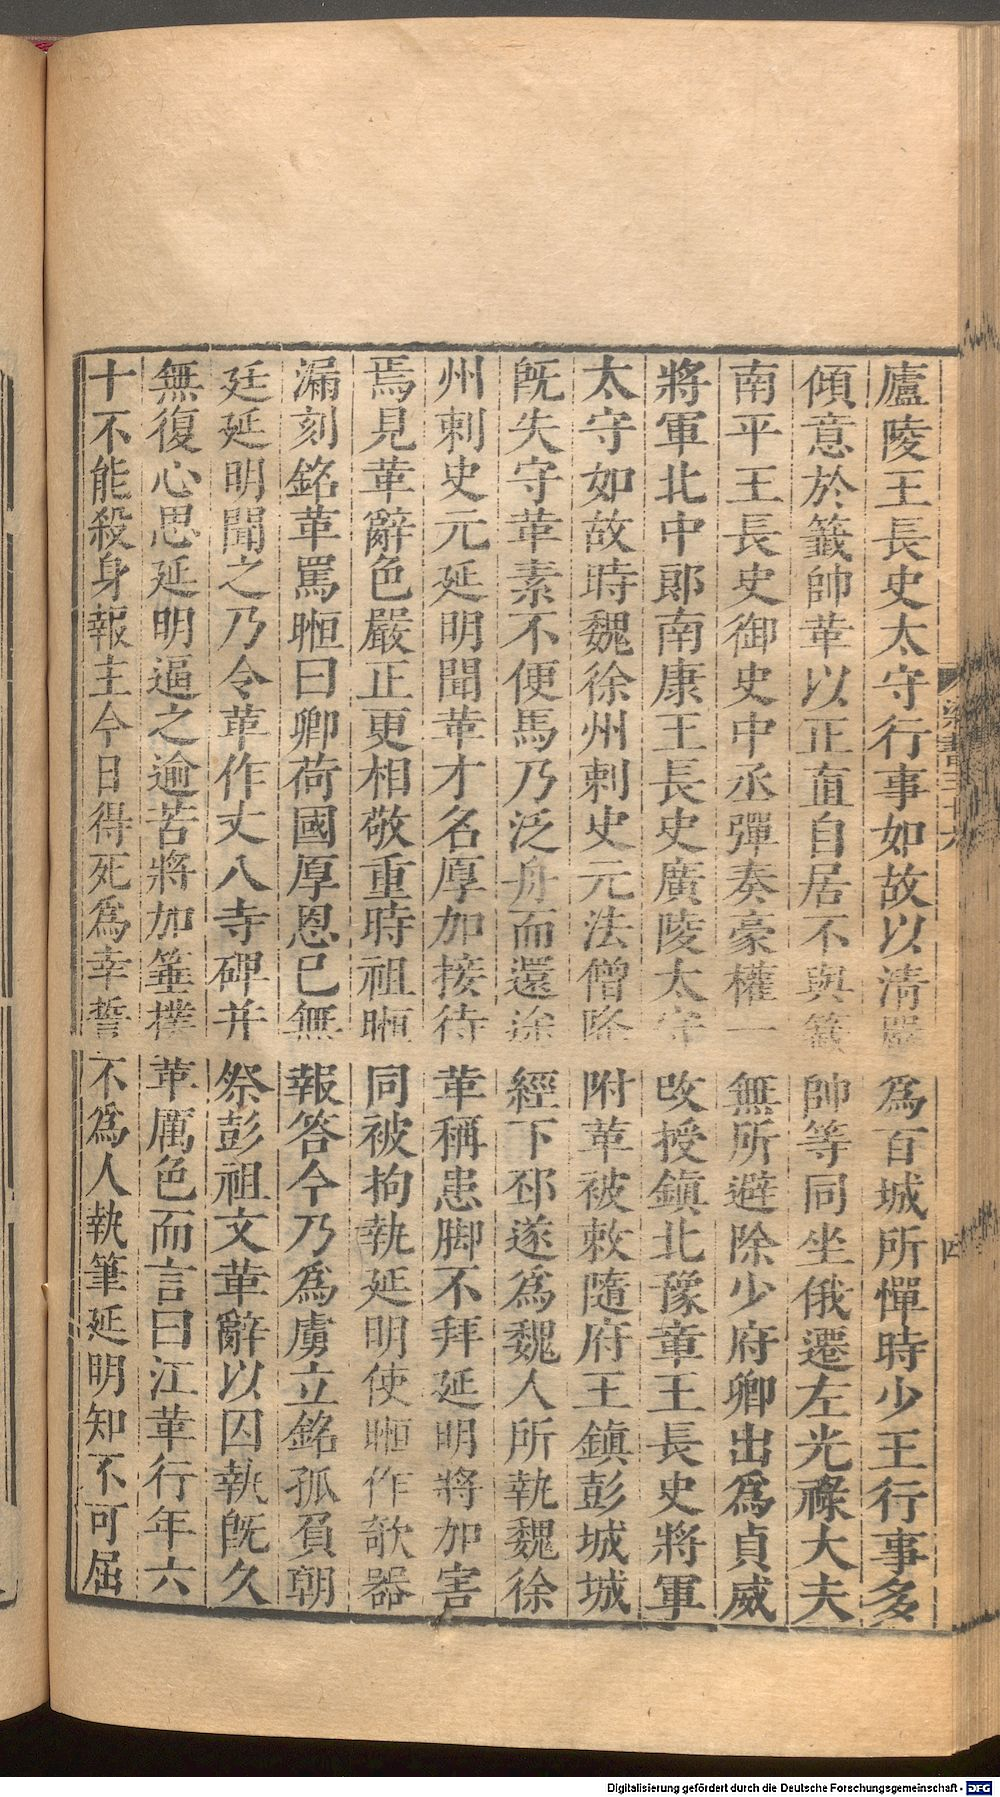 廬陵王長史太守行事如故以清嚴爲百城所憚時少王行事多
傾意於籤帥革以正直自居不與籤帥等同坐俄遷左光祿大夫
南平王長史御史中丞彈奏豪權一無所避除少府卿出爲貞威
將軍北中郎南康王長史廣陵太守改授鎮北豫章王長史將軍
太守如故時魏徐州刺史元法僧降附革被敕隨府王鎮彭城城
旣失守革素不便馬乃泛舟而還途經下邳遂爲魏人所執魏徐
州刺史元延明聞革才名厚加接待革稱患脚不拜延明將加害
焉見革辭色嚴正更相敬重時祖暅同被拘執延明使暅作欹器
漏刻銘革罵暅曰卿荷國厚恩已無報答今乃爲虜立銘孤負朝
廷延明聞之乃令革作丈八寺碑并祭彭祖文革辭以囚執旣久
無復心思延明逼之逾苦將加箠撲革厲色而言曰江革行年六
十不能殺身報主今日得死爲幸誓不爲人執筆延明知不可屈
四
Digitalisierung gefördert durch die Deutsche Forschungsgemeinschaft - DFG